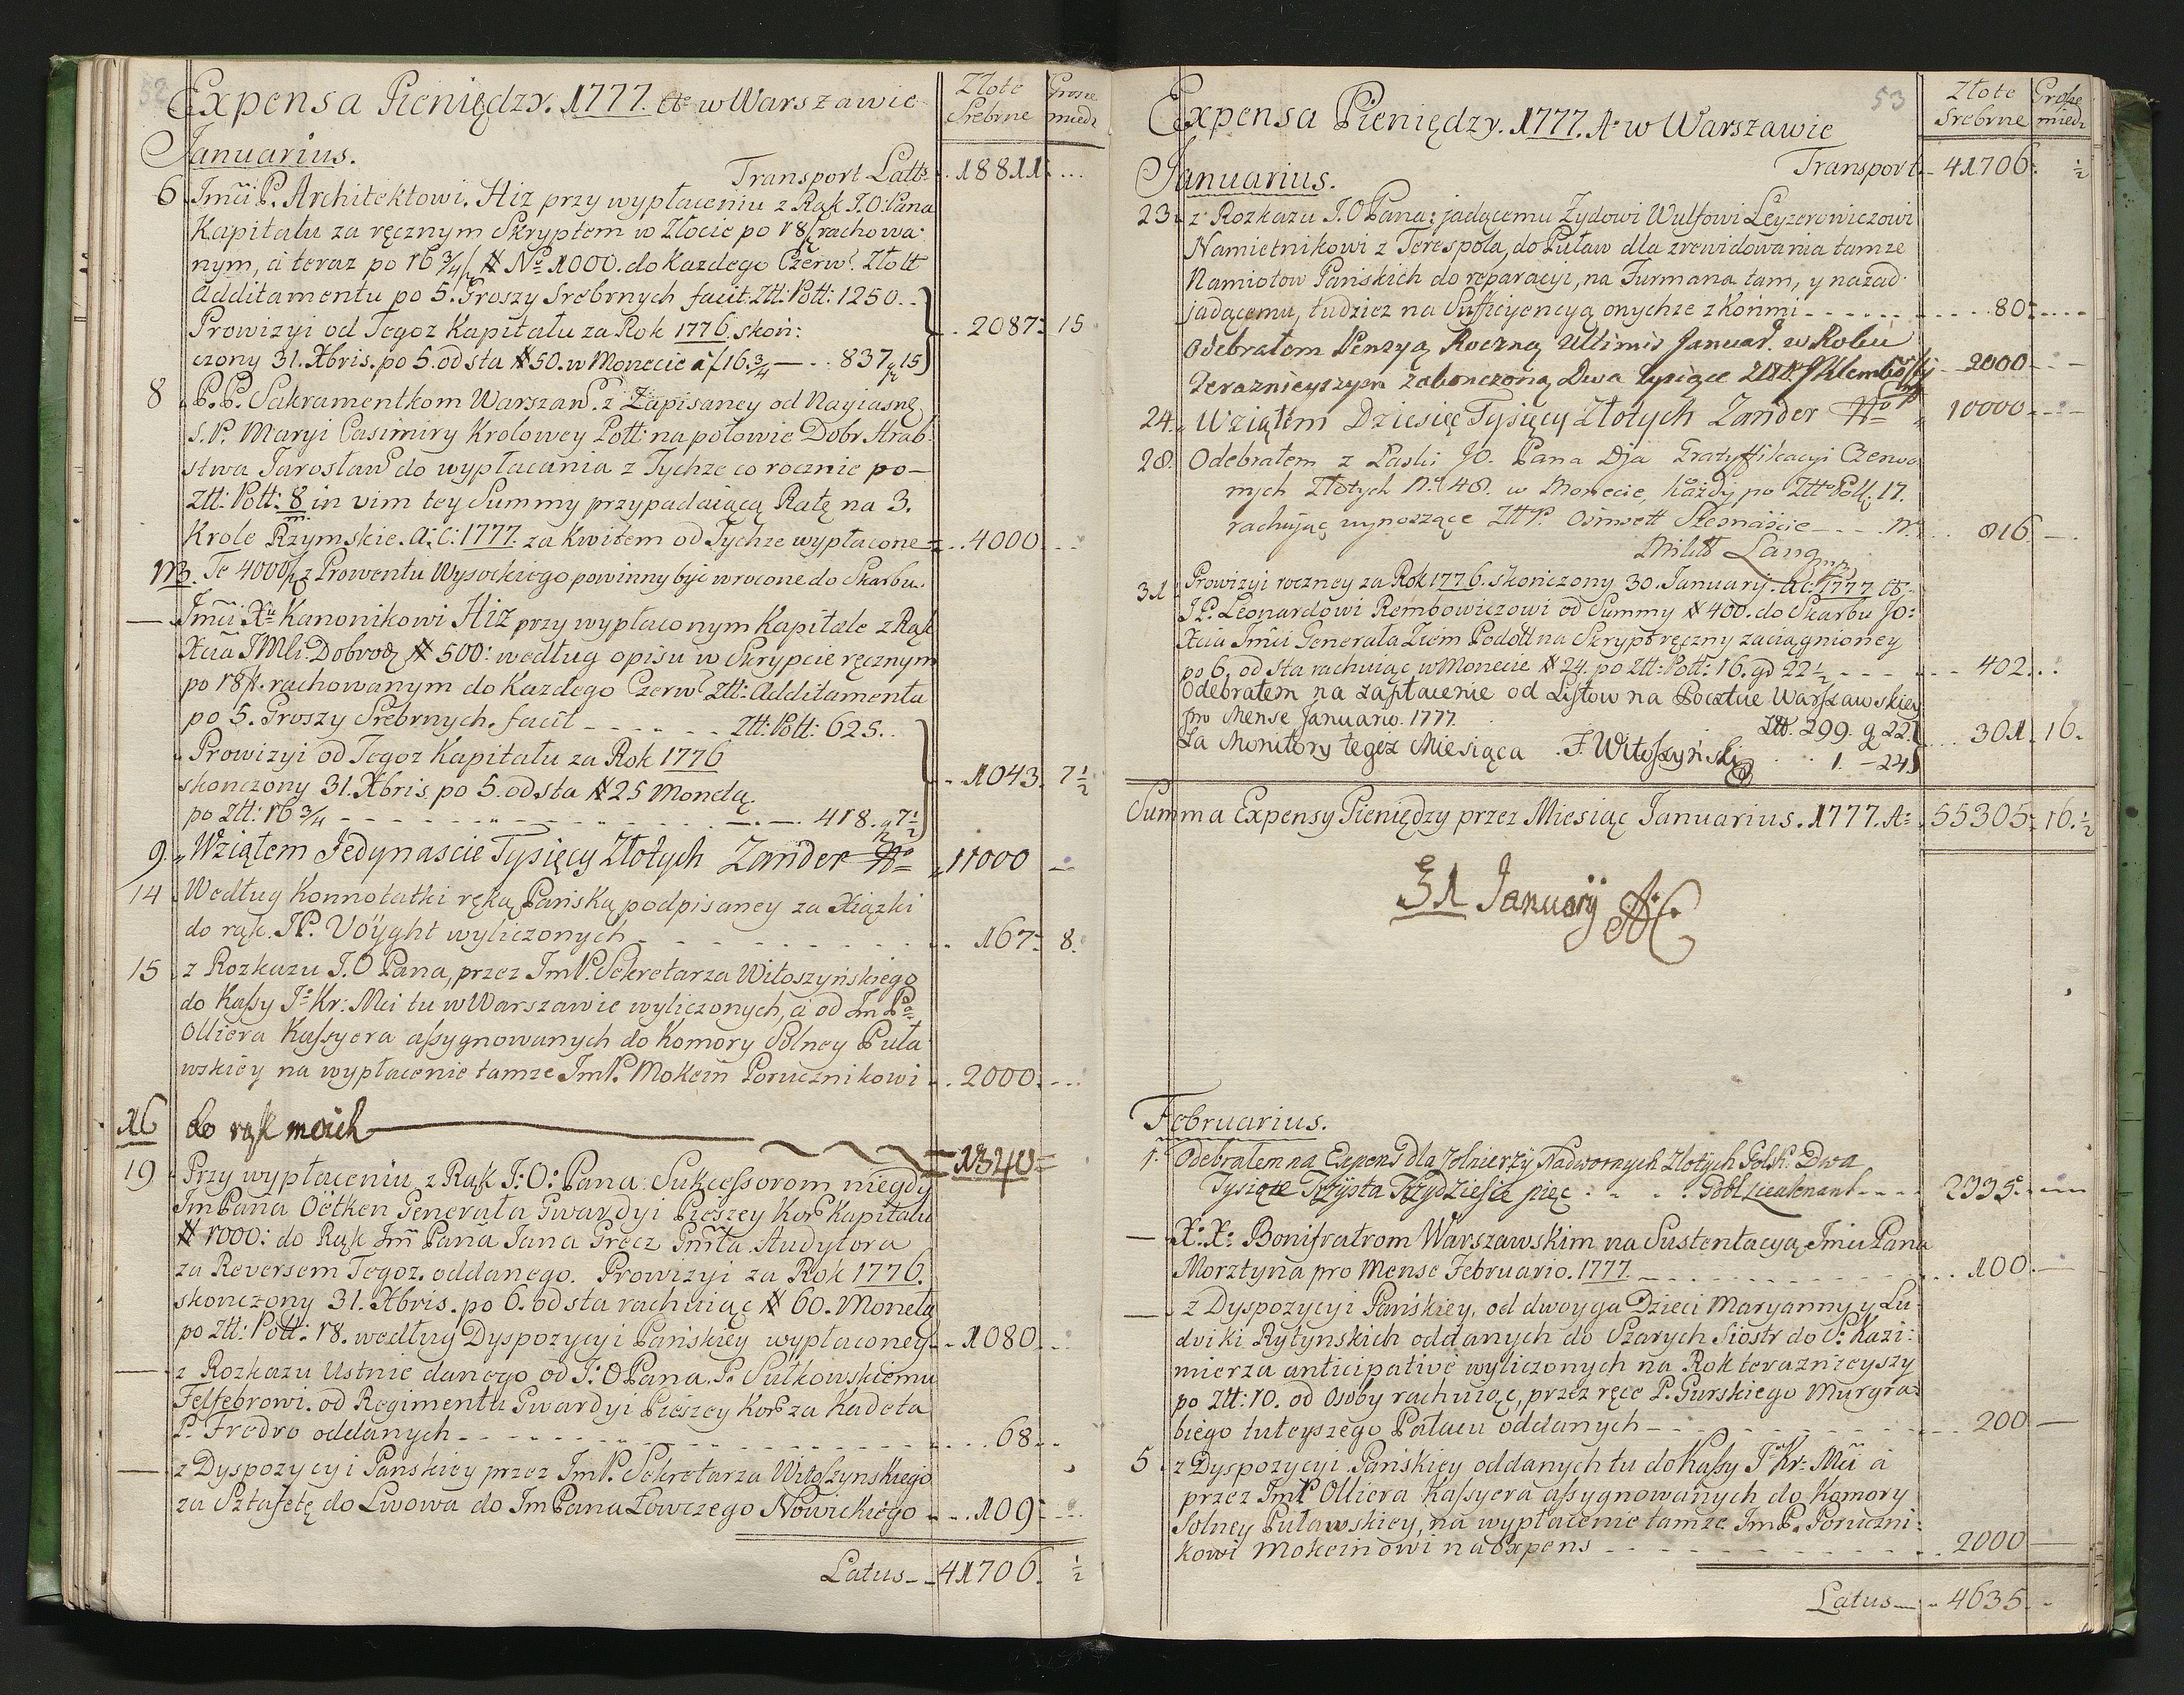 52
Expensa Pieniędzy. 1777. Ae w Warszawie
Złote Srebrne
Grosze miedz
Januarius.
Transport Latt: 18811: ...
6 Jmći P. Architektowi. Hiz przy wypłaceniu z Rąk J.O. Pana
Kapitału za ręcznym Skryptem w Złocie po 18 f rachowa:
nym, a teraz po 16 3/4 f, # No 1000. do Kazdego Czerw. Złott
additamentu po 5. Groszy Srebrnych facit. Ztt: Pott: 1250..
Prowizyi od Tegoz Kapitału za Rok 1776. skoń: .. 2087: 15
czony 31. Xbris. po 5. od sta # 50. w Monecie a f 16. 3/4 — .. 837 g 15
8 P.P. Sakramentkom Warszaw. z Zapisaney od Nayiasnę
S.P. Maryi Casimiry Krolowey Pott: na połowie Dobr Hrab:
stwa Jarosław. do wypłacania z Tychze co rocznie po —
Ztt: Pott: 8 m. in vim tey Summy przypadaiącą Ratę na 3.
Krole Rzymskie. a: c: 1777. za Kwitem od Tychze wypłacone .. 4000. ..
NB. Te 4000 f z Prowentu Wysockiego powinny być wrocone do Skarbu.
— Jmći Xu Kanonikowi Hiz przy wypłaconym Kapitale z Rąk
Xcia JMći Dobrodz # 500: według opisu w Skrypcie ręcznym
po 18 f. rachowanym do Kazdego Czerw. Ztt: Additamentu
po 5. Groszy Srebrnych. facit — — — — Ztt: Pott: 625..
Prowizyi od Tegoz Kapitału za Rok 1776
skonczony 31. Xbris po 5. od sta # 25 Monetą. .. 1043. 7 1/2
po Ztt: 16 3/4 — — — — — — 418. g 7 1/2
9. Wziąłem Jedynascie Tysięcy Złotych Zander 11000 —
14 Według Konnotatki ręką Pańską podpisaney za Xiązki
do rąk. JP. Voÿght wyliczonych — — — — .. 167: 8.
15 z Rozkazu J.O Pana, przez JmP. Sekretarza Witoszyńskiego
do Kassy Jo Kr: Mci tu w Warszawie wyliczonych, a od Jm Pa
Olliera Kassyera assygnowanych do Komory Solney Puła
wskiey na wypłacenie tamze JmP. Mokein Porucznikowi .. 2000. ...
16 do rąk moich —————— 1340=
19 Przy wypłaceniu z Rąk J: O: Pana: Sukcessorom niegdy
Jm Pana Oëtken Generała Gwardyi Pieszey Kor. Kapitału
# 1000: do Rąk Jm Pana Jana Grocz Gnrła. Audytora
za Reversem Tegoz. oddanego. Prowizyi za Rok 1776.
skonczony 31. Xbris. po 6. od sta rachuiąc # 60. Monetą
po Ztt: Pott: 18. według Dyspozycyi Pańskiey wypłaconey .. 1080. ..
— z Rozkazu Ustnie danego od J: O Pana. P. Sułkowskiemu
Felfebrowi. od Regimentu Gwardyi Pieszey Kor. za Kadeta
P. Fredro oddanych — — — — — — .... 68 ...
— z Dyspozycyi Pańskiey przez JmP. Sekretarza Witoszynskiego
za Sztafetę do Lwowa do Jm Pana Łowczego Nowickiego .. 109: ...
Latus — 41706. 1/2
53
Expensa Pieniędzy. 1777. Ae w Warszawie
Złote Srebrne
Grosze miedz
Januarius.
Transport — 41706: 1/2
23. z Rozkazu J. O Pana: jadącemu Zydowi Wulfowi Leyzerowiczowi
Namietnikowi z Terespola, do Puław dla zrewidowania tamze
Namiotow Pańskich do reparacyi, na Furmana tam, y nazad
jadącemu, tudziez na Sufficyencyą onychze z Końmi — — — 80: ....
Odebrałem Penzyą Roczną Ultimis Januar. w Roku
Teraznieyszym zakonczoną Dwa tysiące Ztt P. Sklembowski 2000 ...
24. Wziąłem Dziesięć Tysięcy Złotych Zander 10000 ...
28. Odebrałem z Łaski JO. Pana Dja Gratyffikacyi Czerwo
nych Złotych No 48. w Monecie, każdy po Ztt Pols. 17.
rachując wynoszące Ztt P. Osmsett Szesnaście — — No .. 816 — .
Milit Lang
31. Prowizyi roczney za Rok 1776. skończony 30. January. a: c: 1777
JP. Leonardowi Rembowiczowi od Summy # 400. do Skarbu JO:
Xcia Jmći Generała Ziem Podoll na Skrypt ręczny zaciągnioney
po 6. od sta rachuiąc w Monecie # 24. po Ztt: Pott: 16. g 22 1/2 — — 402...
Odebrałem na zapłacenie od Listow na Pocztue Warszawskiey
pro Mense Januario. 1777. Ztt. 299. g 22. 301. 16.
Za Monitory tegoż Miesiąca . F. Witoszyński . . 1. — 24
Summa Expensy Pieniędzy przez Miesiąc Januarius. 1777. Ae 55305: 16. 1/2
31 Januarij AC
Februarius.
1. Odebrałem na Expens dla Zołnierzy Nadwornych Złotych Polsk. Dwa
Tysiące Trzysta Trzydzieście pięc . . . Lieutenant — 2335. —
— X: X: Bonifratrom Warszawskim na Sustentacyą Jmći Pana
Morztyna pro Mense Februario. 1777. — — — — 100. —
— z Dyspozycyi Pańskiey, od dwoyga Dzieci Maryanny y Lu
dwiki Rytynskich oddanych do Szarych Siostr do S: Kazi:
mierza anticipativè wyliczonych na Rok teraznieyszy
po Ztt: 10. od Osoby rachuiąc, przez ręce P. Gurskiego Murgra:
biego tuteyszego Pałacu oddanych — — — — 200 —
5. z Dyspozycyi Pańskiey oddanych tu do Kassy Jo Kr: Mći a
przez JmP Olliera Kassyera assygnowanych do Komory
Solney Puławskiey, na wypłacenie tamze JmP. Poruczni:
kowi Mokeinowi na Expens — — — — 2000 —
Latus — 4635. ..